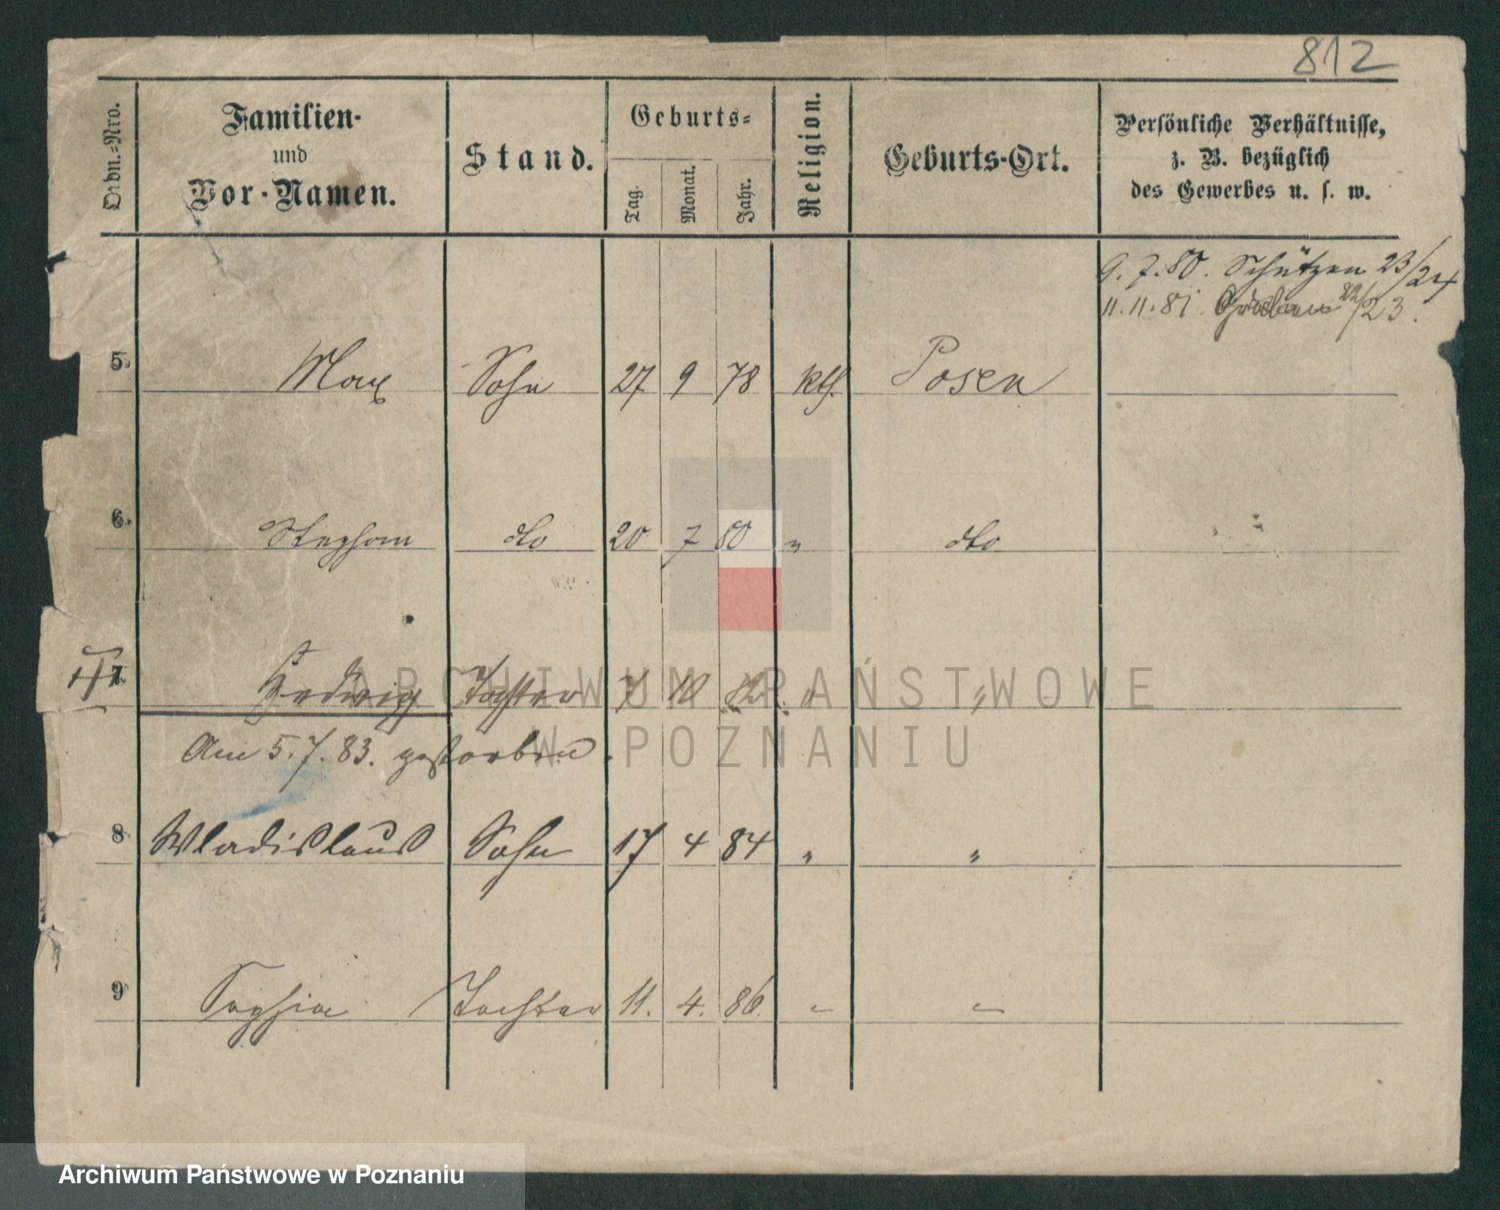 812
Ordn.-Nro.
Familien-
und
Vor-Namen.
Stand.
Geburts-
Tag.
Monat.
Jahr.
Religion.
Geburts-Ort.
Persönliche Verhältnisse,
z. B. bezüglich
des Gewerbes u. s. w.
9. 7. 80. Schützen 23/24
11. 11. 81. Graben 22/23.
5. Max Sohn 27 9 78 kth. Posen
6. Stephan dto 20 7 80 " dto
7. Hedwig Tochter 7 10 82. " "
Am 5. 7. 83. gestorben.
8 Wladislaus Sohn 17 4 84 " "
9 Sophia Tochter 11. 4. 86 " "
ARCHIWUM PAŃSTWOWE
W POZNANIU
Archiwum Państwowe w Poznaniu